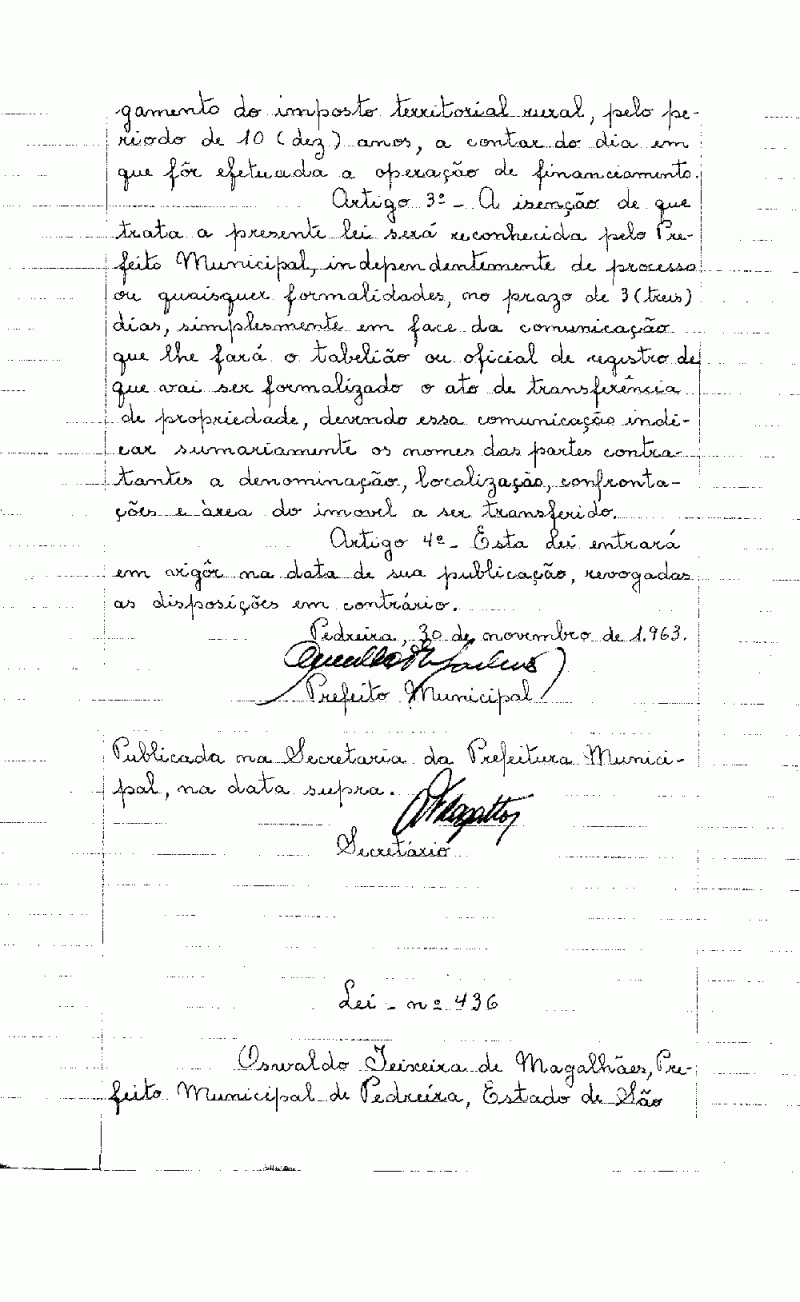 gamento do imposto territorial rural, pelo pe-
riodo de 10 (dez) anos, a contar do dia em
que fôr efetuada a operação de financiamento.
Artigo 3º - A isenção de que
trata a presente lei será reconhecida pelo Pre-
feito Municipal, independentemente de processo
ou quaisquer formalidades, no prazo de 3 (treis)
dias, simplesmente em face da comunicação
que lhe fará o tabelião ou oficial de registro de
que vai ser formalizado o ato de transferência
de propriedade, devendo essa comunicação indi-
car sumariamente os nomes das partes contra-
tantes a denominação, localização, confronta-
ções e àrea do imovel a ser transferido.
Artigo 4º - Esta Lei entrará
em vigôr na data de sua publicação, revogadas
as disposições em contrário.
Pedreira, 30 de novembro de 1.963.
Prefeito Municipal
Publicada na Secretaria da Prefeitura Munici-
pal, na data supra.
Secretário
Lei - nº 436
Oswaldo Teixeira de Magalhães, Pre-
feito Municipal de Pedreira, Estado de São